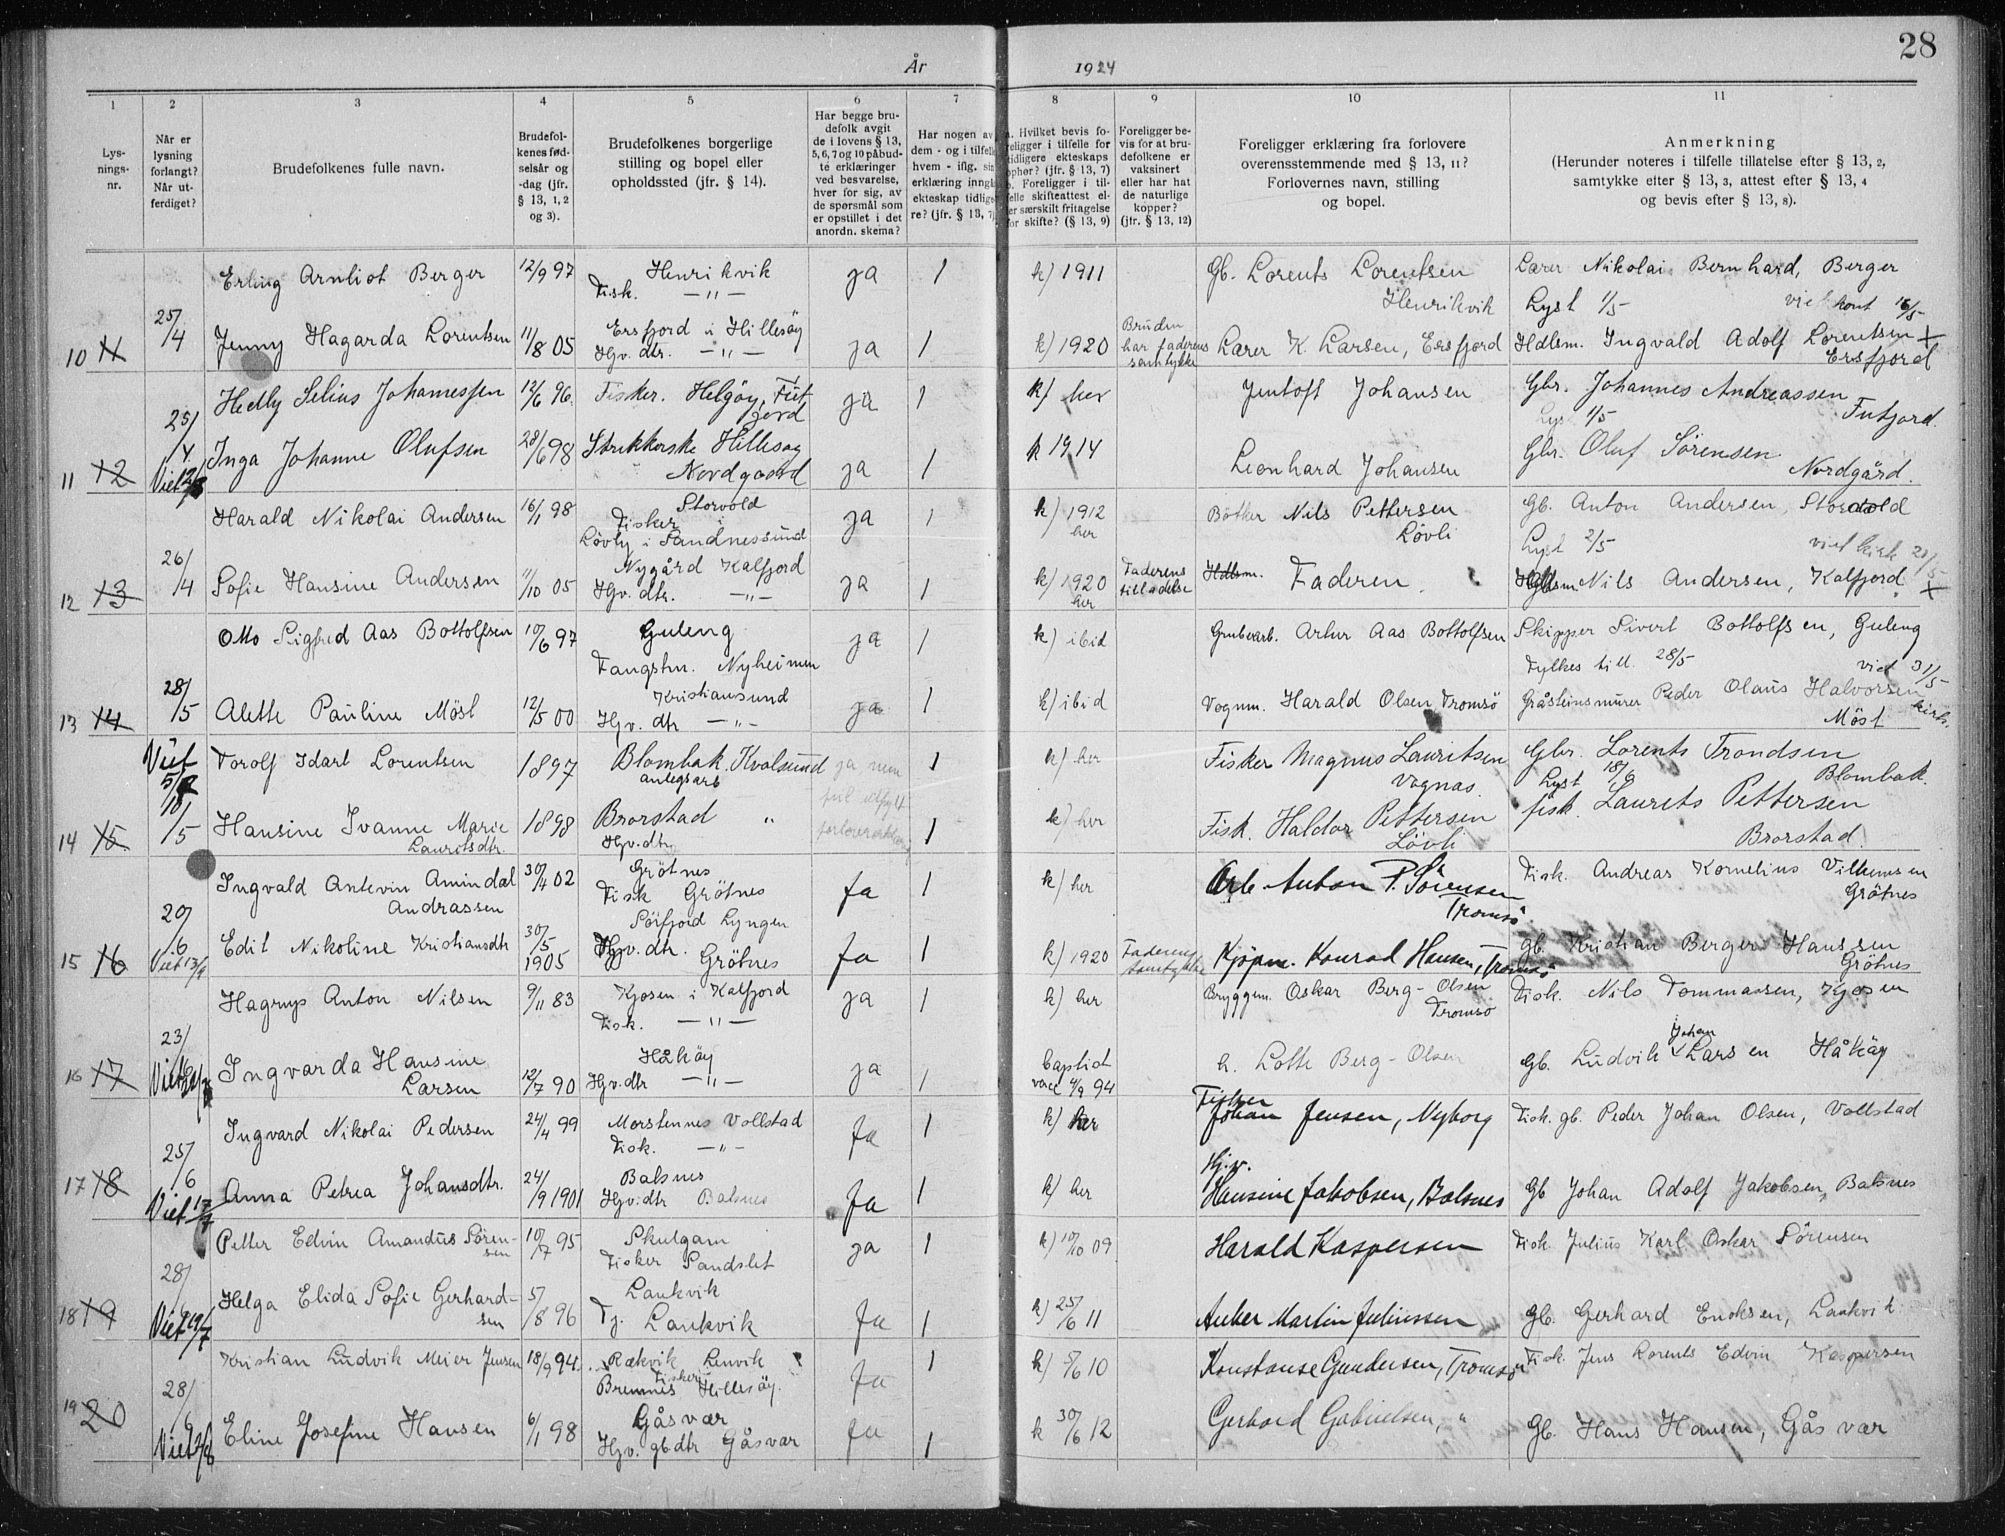 År 1924
28
1
2
3
4
5
6
7
8
9
10
11
Lysningsnr.
Når er lysning forlangt? Når utferdiget?
Brudefolkenes fulle navn.
Brudefolkenes fødselsår og -dag (jfr. § 13, 1, 2 og 3).
Brudefolkenes borgerlige stilling og bopel eller opholdssted (jfr. § 14).
Har begge brudefolk avgit de i lovens § 13, 5, 6, 7 og 10 påbudte erklæringer ved besvarelse, hver for sig, av de spørsmål som er opstillet i det anordn. skema?
Har nogen av dem - og i tilfelle hvem - iflg. sin erklæring inngå ekteskap tidligere? (jfr. § 13, 7)
Hvilket bevis foreligger i tilfelle for tidligere ekteskaps ophør? (jfr. § 13, 7) Foreligger i tilfelle skifteattest eller særskilt fritagelse for skifte? (§ 13, 9)
Foreligger bevis for at brudefolkene er vaksinert eller har hat de naturlige kopper? (jfr. § 13, 12)
Foreligger erklæring fra forlovere overensstemmende med § 13, 11? Forlovernes navn, stilling og bopel.
Anmerkning (Herunder noteres i tilfelle tillatelse efter § 13, 2, samtykke efter § 13, 3, attest efter § 13, 4 og bevis efter § 13, 8).
Erling Arnliot Berger 12/9 97 Henrikvik Fisk. -"- ja 1 k) 1911 Gb. Lorents Lorentsen Henrikvik Lærer Nikolai Bernhard, Berger
Lyst 1/5 viet kont 16/5
10 11 25/4 Jenny Hagarda Lorentsen 11/8 05 Ersfjord i Hillesøy Hjv. dtr. -"- ja 1 k) 1920 Bruden har faderens samtykke Lærer K. Larsen, Ersfjord Hdlsm. Ingvald Adolf Lorentsen Ersfjord
Hedly Selius Johannessen 12/6 96 Fisker. Helgøy, Futfjord ja 1 k) her Jentoft Johansen Gbr. Johannes Andreassen Futfjord.
Lyst 1/5
11 12 25/4 Viet Inga Johanne Olufsen 28/6 98 Strikkerske Hillesøy Nordgaard ja 1 k 1914 Leonhard Johansen Gbr. Oluf Sörensen Nordgård.
Harald Nikolai Andersen 16/1 98 Storvold Fisker Løvly i Sandnessund ja 1 k) 1912 her Bøtker Nils Pettersen Løvli Gb. Anton Andersen, Storvold
Lyst 2/5 viet kirk 21/5
12 13 26/4 Sofie Hansine Andersen 11/10 05 Nygård Kalfjord Hjv. dtr. -"- ja 1 k) 1920 her Faderens tilladelse Hdlsm. Faderen. Nils Andersen, Kalfjord.
Otto Sigfred Aas Bottolfsen 10/6 97 Guleng Fangstm. Nyheimen ja 1 k) ibid Grubearb. Artur Aas Bottolfsen Skipper Sivert Bottolfsen, Guleng
Fylkes till. 28/5 viet 31/5 kirk.
13 14 28/5 Alette Pauline Möst 12/5 00 Kristiansund Hjv. dtr -"- ja 1 k) ibid Vognm. Harald Olsen, Tromsö Gråsteinsmurer Peder Olaus Halvorsen Möst
Viet Torolf Idart Lorentsen 1897 Blombak. Kvalsund anlegsarb 1 k) her Fisker Magnus Lauritsen Vognas. Gbr. Lorents Trondsen Blombak.
Lyst 18/6
14 15 10/5 Hansine Ivanne Marie Lauritsdtr. 1898 Brorstad " Hjv. dtr 1 k) her Fisk. Haldor Pettersen Løvli fisk. Laurits Pettersen Brorstad
Ingvald Antevin Amindal Andrassen 30/4 02 Grötnes Fisk Grötnes ja 1 k) her Arb. Anton P. Sörensen Tromsö Fisk. Andreas Kornelius Vilhemsen Grötnes
15 16 20/6 Viet 13/9 Edit Nikoline Kristiansdtr 30/5 1905 Sörfjord Lyngen Hjv. dtr. Grötnes ja 1 k) 1920 Faderens samtykke Kjöpm. Konrad Hansen, Tromsö gb. Kristian Berger Hanssen Grötnes
Hagrup Anton Nilsen 9/11 83 Kjosen i Kalfjord Fisk. -"- ja 1 k) her Bryggem. Oskar Berg-Olsen Tromsö Fisk. Nils Tommassen, Kjosen
16 17 23/ Viet Ingvarda Hansine Larsen 12/7 90 Håköy Hjv. dtr -"- ja 1 baptist vacc 4/9 94 h. Lotte Berg-Olsen Gb. Ludvik Johan Larsen Håköy
Ingvard Nikolai Pedersen 24/4 99 Morstennes Vollstad Fisk. -"- ja 1 k) her Fisker Johan Jensen, Nyborg Fisk. gb. Peder Johan Olsen, Vollstad
17 18 25/6 Viet 17/7 Anna Petrea Johansdtr. 24/9 1901 Balsnes Hjv. dtr Balsnes ja 1 k) her Hj.v. Hansine Jakobsen, Balsnes Gb Johan Adolf Jakobsen, Balsnes
Petter Edvin Amandus Sörensen 10/7 95 Skulgam Fisker Sandslet ja 1 k) 10/10 09 Harald Kaspersen Fisk. Julius Karl Oskar Sörensen
18 19 28/ Viet Helga Elida Sofie Gerhardsen 5/8 96 Laukvik Tj. Laukvik ja 1 k) 25/6 11 Anker Martin Juliussen Gb. Gerhard Enoksen, Laukvik
Kristian Ludvik Meier Jensen 18/9 94. Rækvik Lenvik Fisker Bremnes Hillesøy. ja 1 k) 5/6 10 Konstanse Gundersen, Tromsö Fisk. Jens Lorents Edvin Kaspersen
19 20 28/6 Viet Eline Josefine Hansen 6/1 98 Gåsvær Hjv. gb dtr Gåsvær ja 1 k 30/6 12 Gerhard Gabrielsen, " Gb. Hans Hansen, Gåsvær